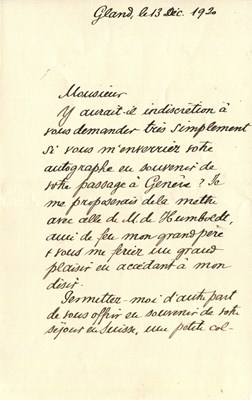 Gland, le 13 Déc. 1920
Monsieur
Y aurait-il indiscrétion à
vous demander très simplement
si vous m'enverriez votre
autographe en souvenir de
votre passage à Genève ? Je
me proposerais de la mettre
avec celle de M. de Humboldt,
ami de feu mon grand père
& vous me feriez un grand
plaisir en accédant à mon
désir.
Permettez-moi d'autre part
de vous offrir en souvenir de votre
séjour en Suisse, une petite col-